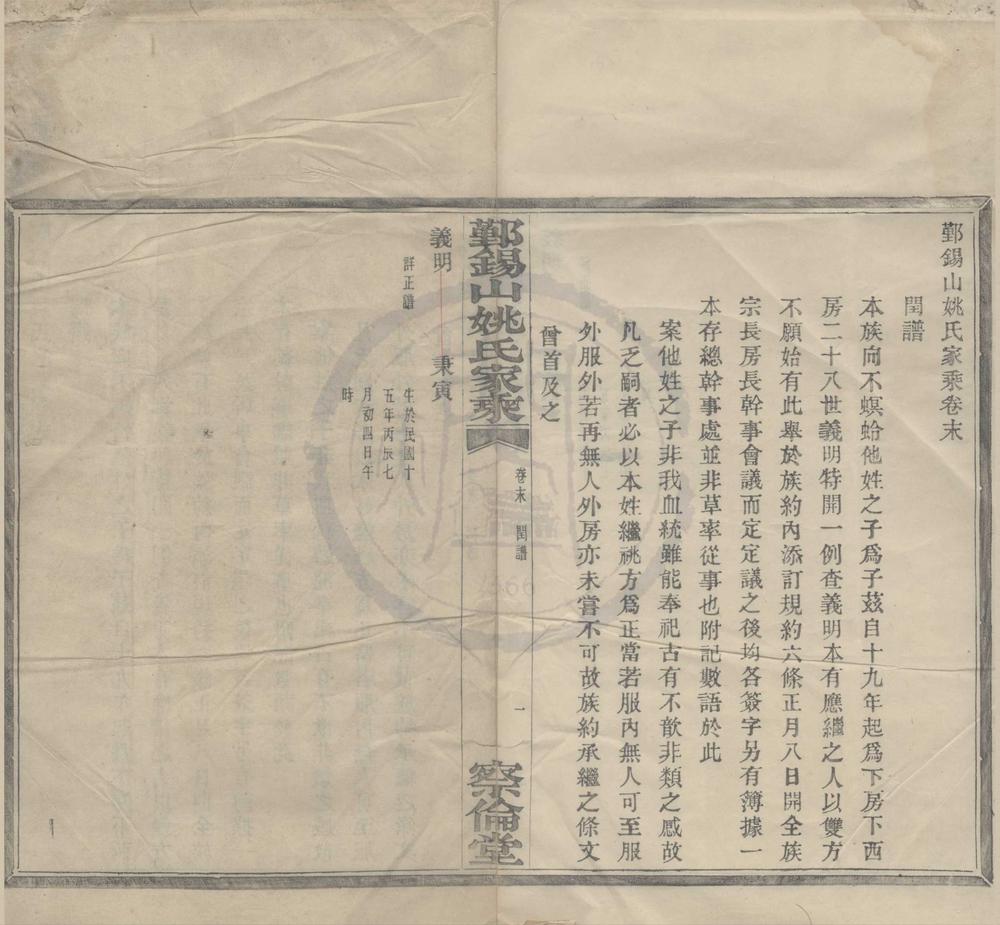 鄞錫山姚氏家乘卷末
閏譜
本族向不螟蛉他姓之子爲子茲自十九年起爲下房下西
房二十八世義明特開一例查義明本有應繼之人以雙方
不願始有此舉於族約內添訂規約六條正月八日開全族
宗長房長幹事會議而定定議之後均各簽字另有簿據一
本存總幹事處並非草率從事也附記數語於此
案他姓之子非我血統雖能奉祀古有不歆非類之感故
凡乏嗣者必以本姓繼祧方爲正當若服內無人可至服
外服外若再無人外房亦未嘗不可故族約承繼之條文
曾首及之
鄞錫山姚氏家乘
卷末 閏譜
一
察倫堂
義明
詳正譜
秉寅
生於民國十
五年丙辰七
月初四日午
時